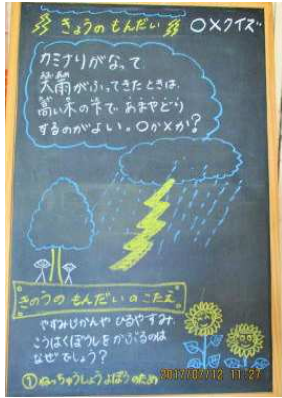 きょうの もんだい ○×クイズ
カミナリがなって、
大雨がふってきたときは、
高い木の下で あまやどり
するのがよい。○か×か?
きのうの もんだいの こたえ
やすみじかんや ひるやすみ、
こうはくぼうしをかぶるのは
なぜでしょう?
① ねっちゅうしょうよぼうのため
2017/07/12 11:27